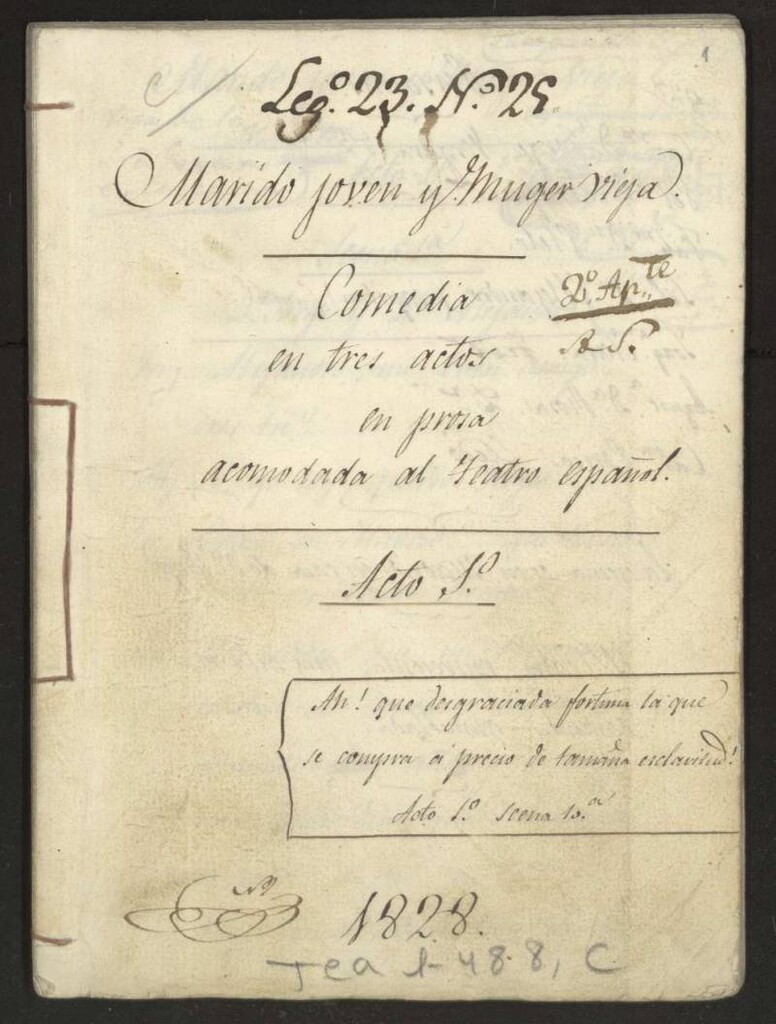 1
Leg.º 23. N.º 25.
Marido joven y Muger vieja.
Comedia
2.º Ap.te
en tres actos
en prosa
acomodada al Teatro español.
Acto 1.º
Ah! que desgraciada fortuna la que
se compra á precio de tamaña esclavitud!
Acto 1.º Scena 10.a
1828.
Tea 1-48-8, C